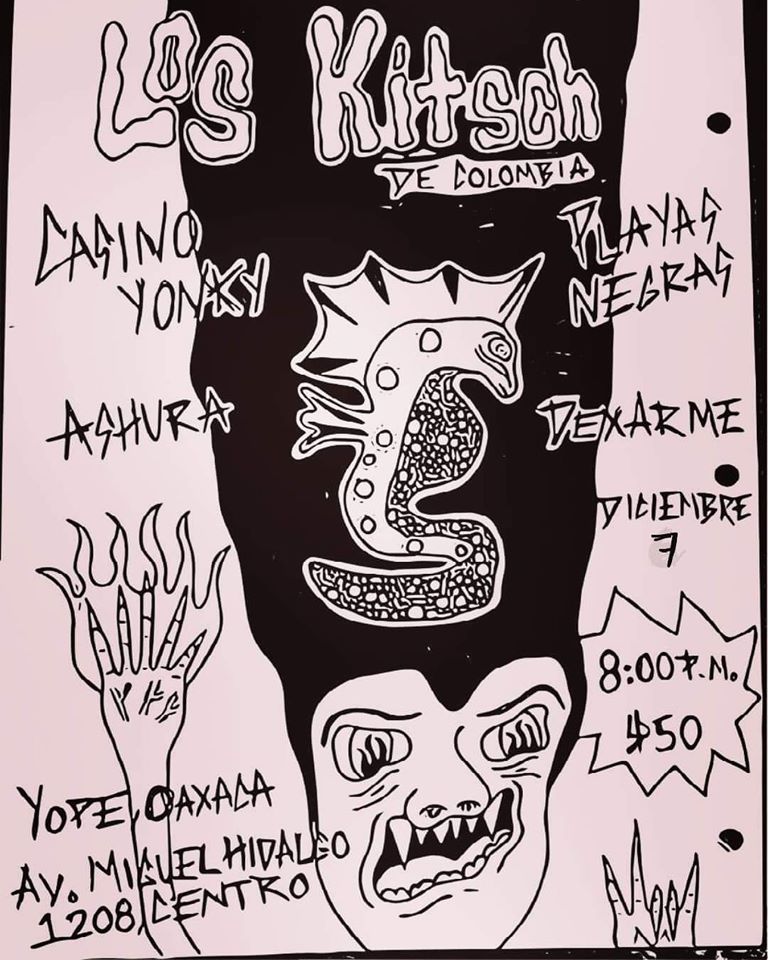 Los Kitsch
DE COLOMBIA
CASINO
YONKY
PLAYAS
NEGRAS
ASHURA
DEXARME
DICIEMBRE
7
8:00 P.M.
$50
YOPE, OAXACA
AV. MIGUEL HIDALGO
1208, CENTRO